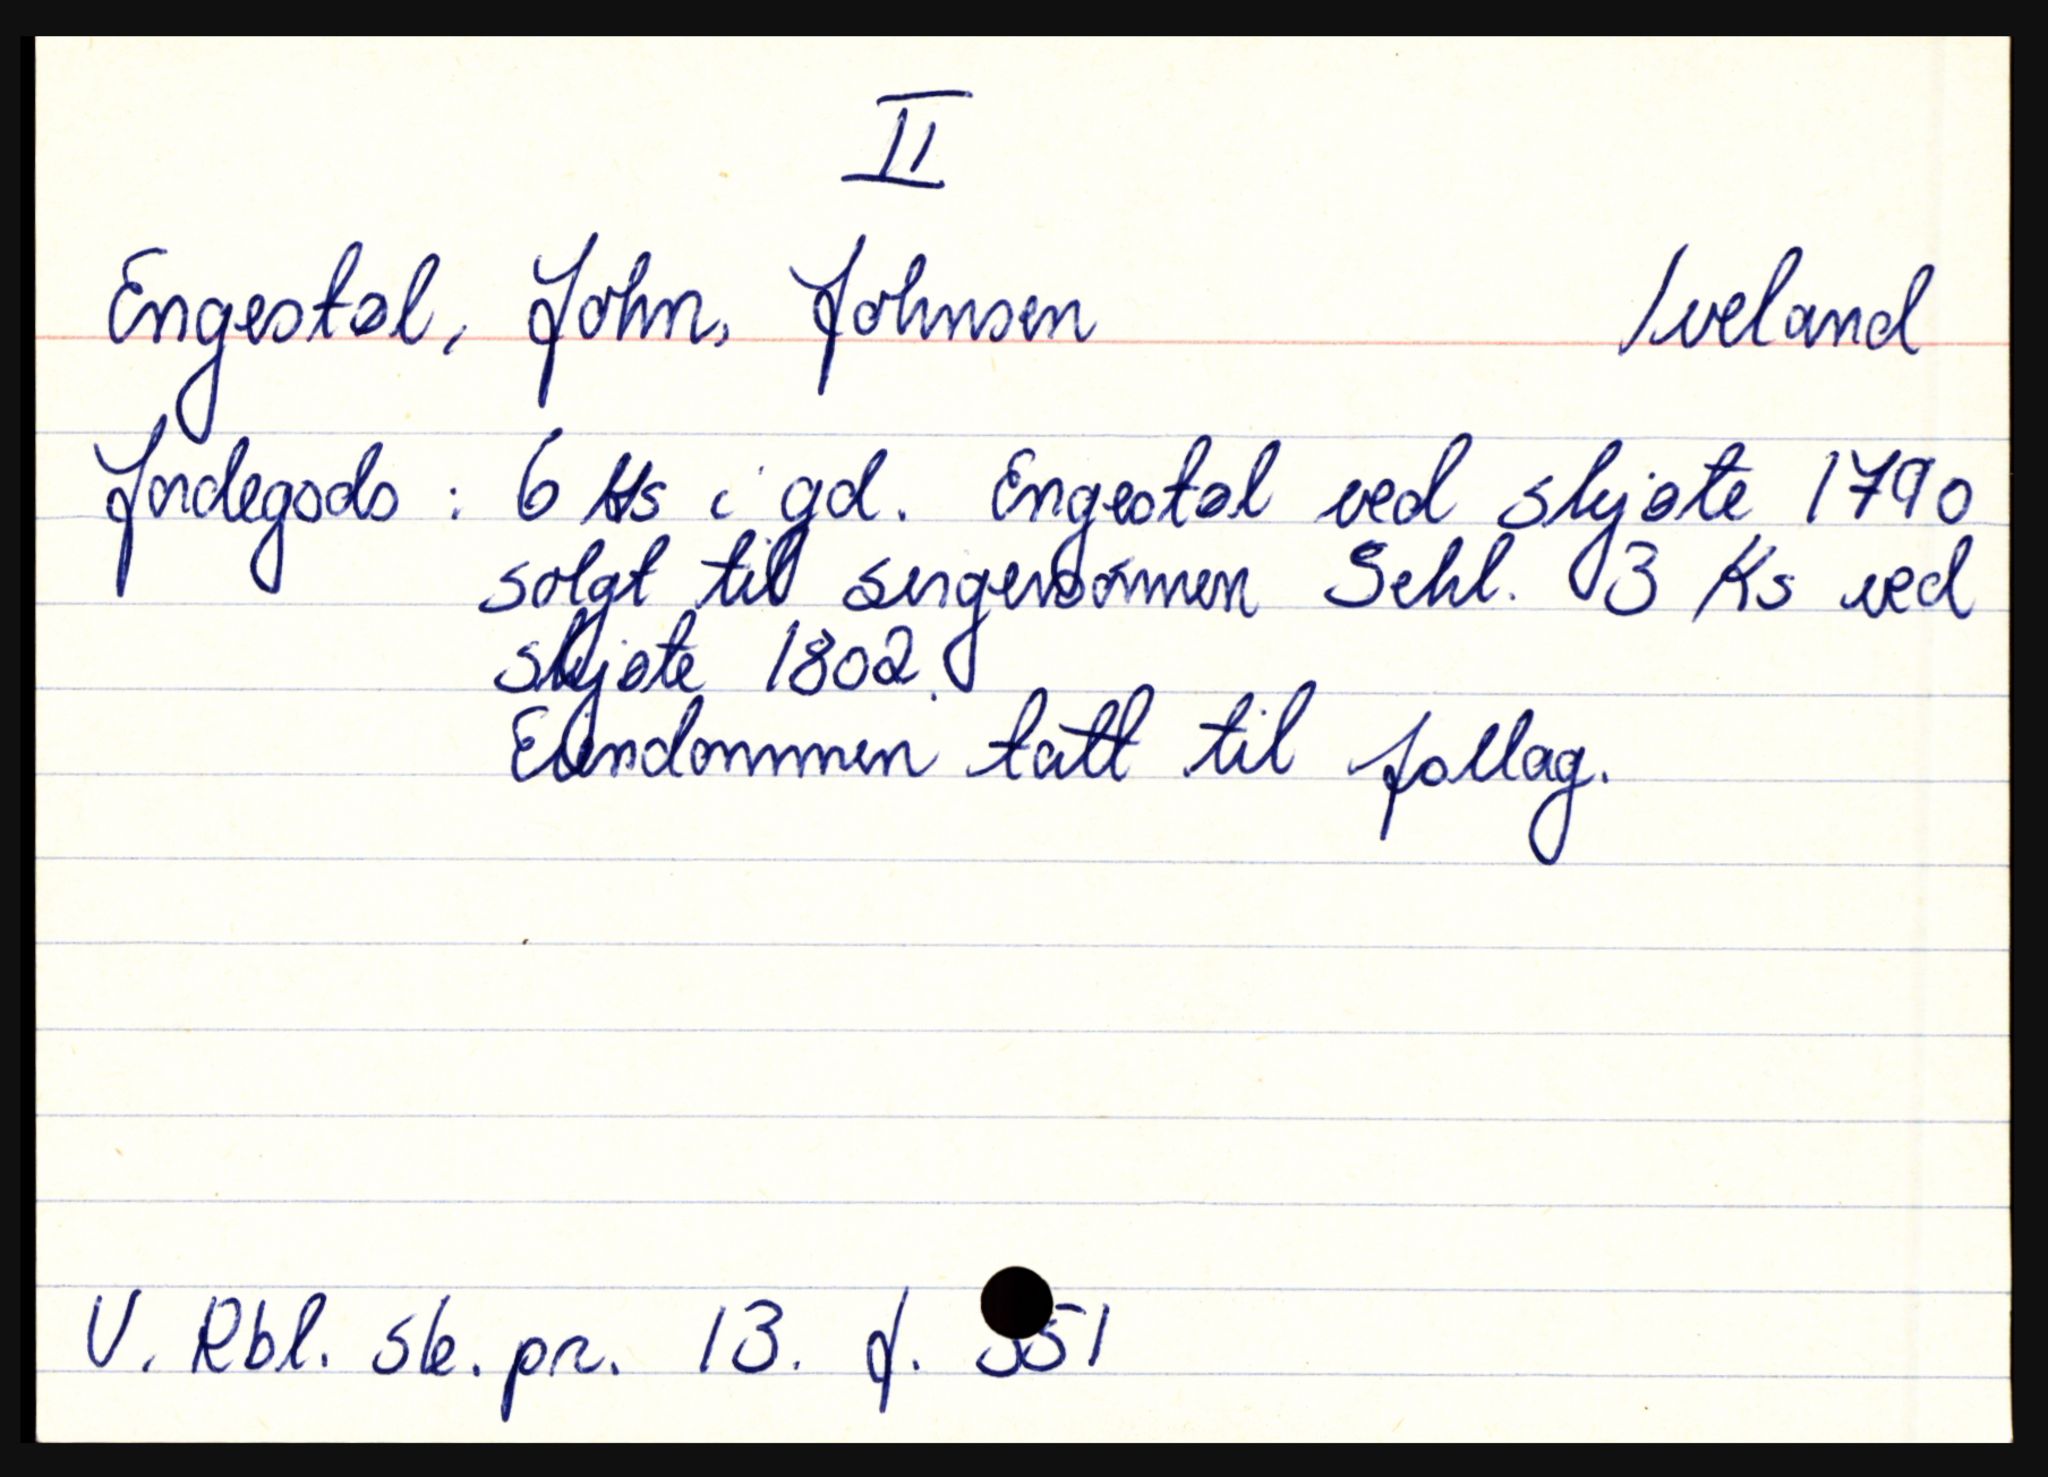 II
Engestøl, John, Johnsen Iveland
Jordegods : 6 Ks i gd. Engestøl ved skjøte 1790
solgt til svigersønnen Sehl. 3 Ks ved
skjøte 1802.
Eiendommen tatt til follag.
V. Rbl. sk. pr. 13. f. 51